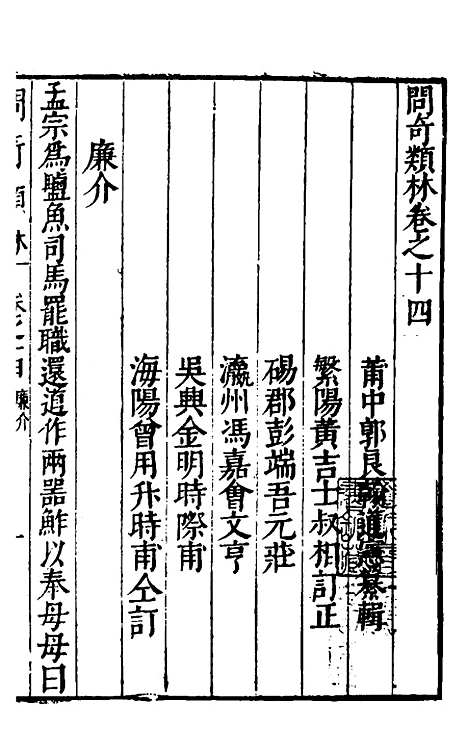 問奇類林卷之十四
莆中郭良翰道憲纂輯
繁陽黃吉士叔相訂正
碭郡彭端吾元莊
瀛州馮嘉會文亨
吳興金明時際甫
海陽曾用升時甫仝訂
廉介
孟宗爲鹽魚司馬罷職還道作兩器鮓以奉母母曰
廉介 一